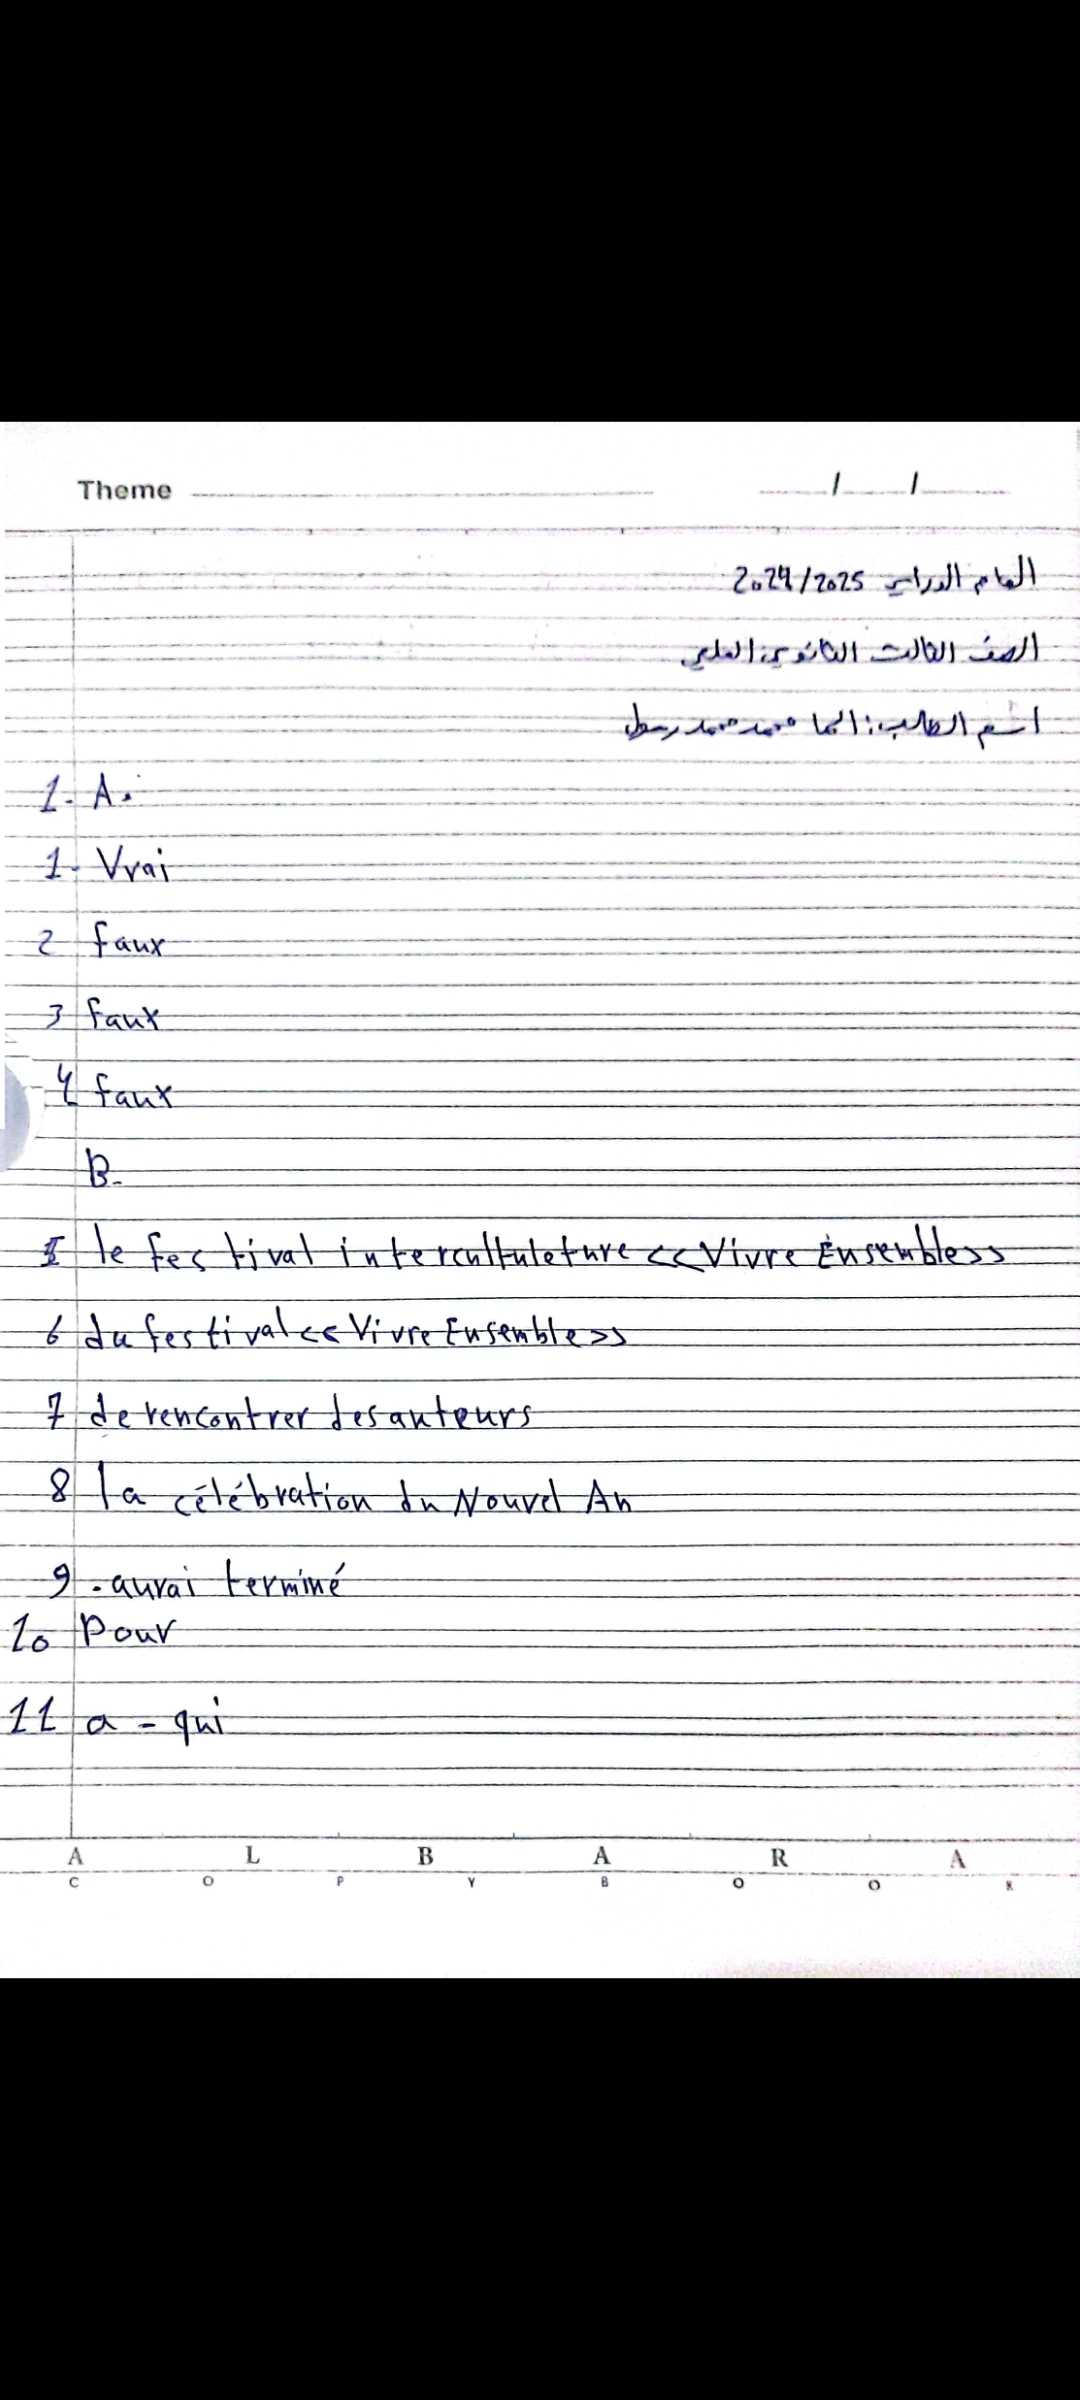 Theme / /
العام الدراسي 2024/2025
الصف الثالث الثانوي العلمي
اسم الطالب: محمد محمد رسول
1- A.
1- Vrai
2 faux
3 faux
4 faux
B-
5 le festival interculturleture <<Vivre Ensemble>>
6 du festival << Vivre Ensemble>>
7 de rencontrer des auteurs
8 la célébration du Nouvel An
9 - aurai terminé
10 Pour
11 a - qui
A L B A R A
C O P Y B O O K